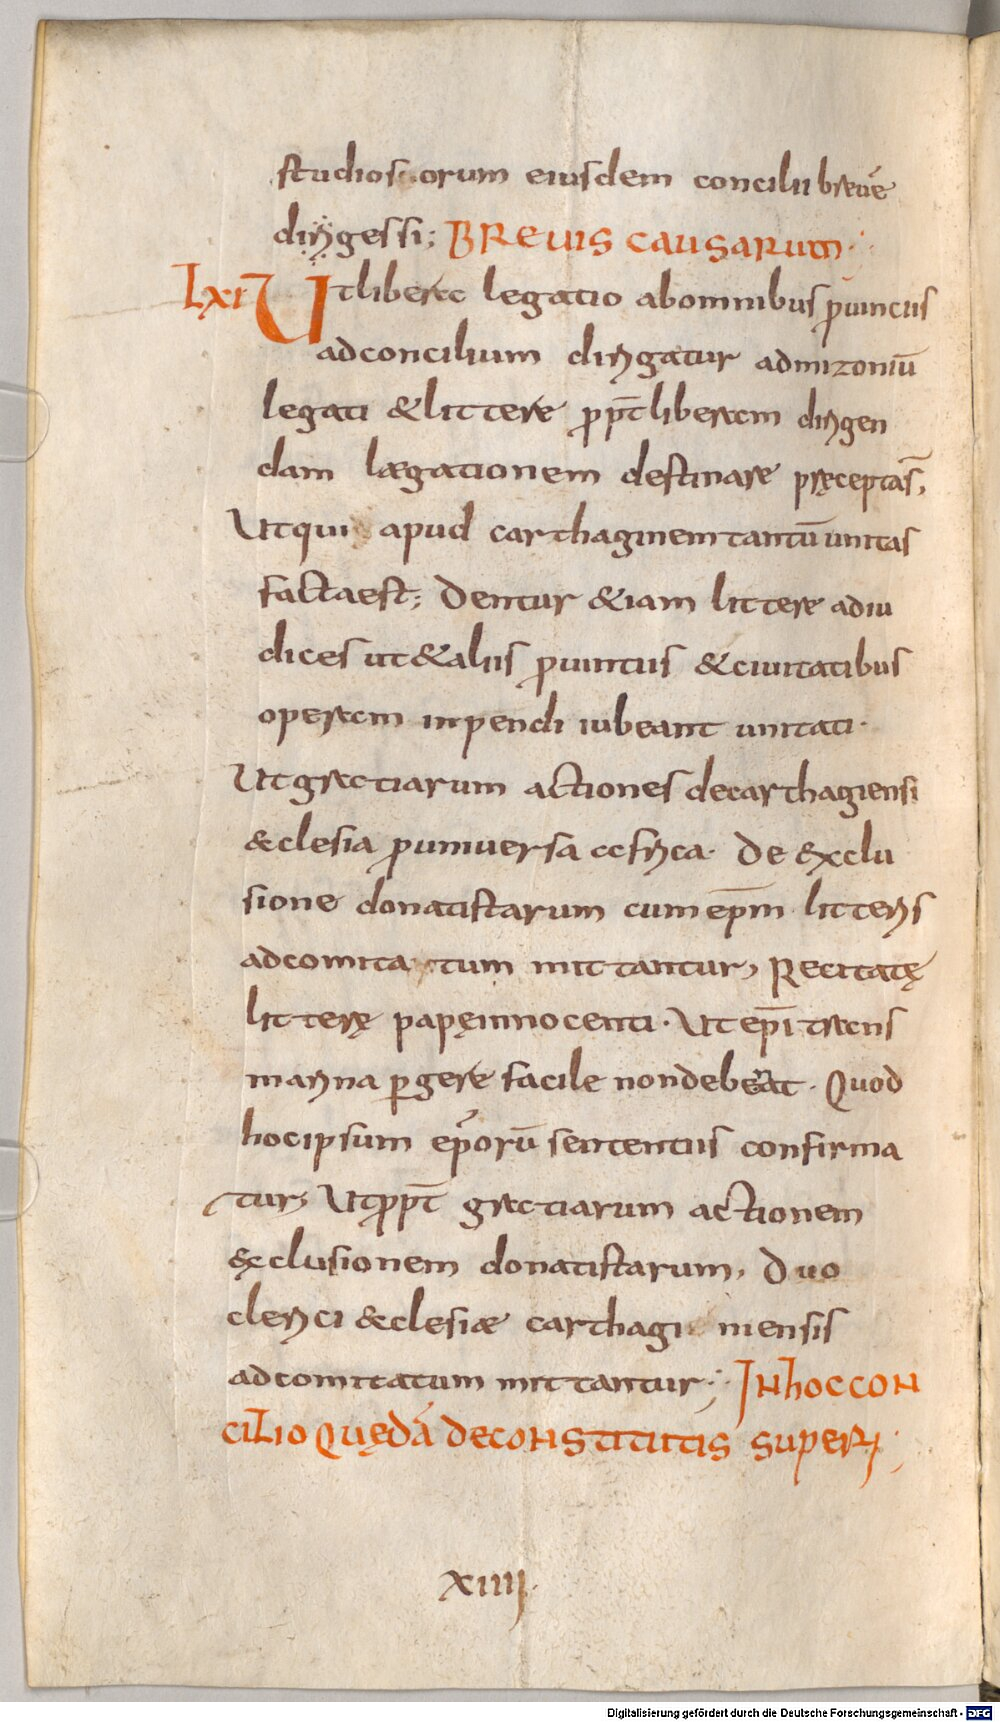 studiosorum eiusdem concilii breuē
dirigessi; BREUIS CAUSARUM
LXI Ut libera legatio abomnibus ꝓuinciis
adconcilium dirigatur admizoniū
legati & littere ꝓpt̄ liberam dirigen
dam lægationem destinare pręceptas̄,
Ut qui apud carthaginem tantū unitas
facta est; Dentur &iam littere adiu
dices ut & aliis ꝓuintiis & ciuitatibus
operam inpendi iubeant unitati·
Ut gratiarum actiones decarthagiensi
&clesia ꝓ uniuersa africa· De &xclu
sione donatistarum cum ep̄m litteris
adcomitatum mittantur, Recitatę
litterę papę innocenti· Ut ep̄i trans
marina ꝑgere facile non debeat· Quod
hoc ipsum ep̄orū sententiis confirma
tur, Ut ꝓpt̄ gratiarum actionem
&clusionem donatistarum, Duo
clerici &clesiæ carthaginiensis
adcomitatum mittantur; IN hoc CON
CILIO QUĘDĀ DE CONSTITUTIS SUPERI
XIIII·
Digitalisierung gefördert durch die Deutsche Forschungsgemeinschaft - DFG